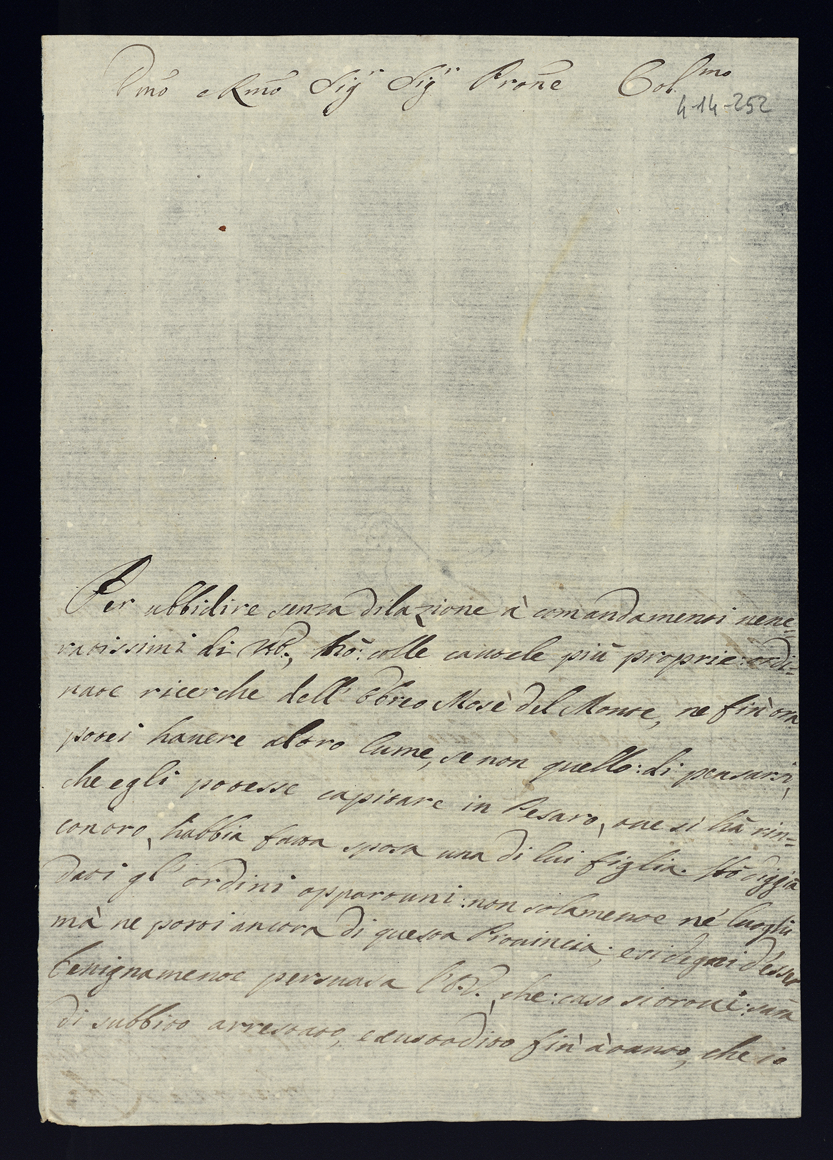 Emõ e Rmõ Sig.r Sig.r Prone Col.mo
4-14-252
Per ubbidire senza dilazione à comandamenti vene=
ratissimi di V.E., hò: colle cautele più proprie: ordi=
nate ricerche dell' Ebreo Mosè del Monte, ne fin'ora
potei havere altro lume, se non quello: di pensarsi,
che egli potesse capitare in Pesaro, ove si hà rin=
contro, habbia fatta sposa una di lui figlia. Hò diggià
dati gl' ordini opportuni: non solamente ne' luoghi
mà ne porti ancora di questa Provincia; e si degni d'esser
benignamente persuasa V.E., che: caso si trovi: sarà
di subbito arrestato, e custodito fin' à tanto, che io